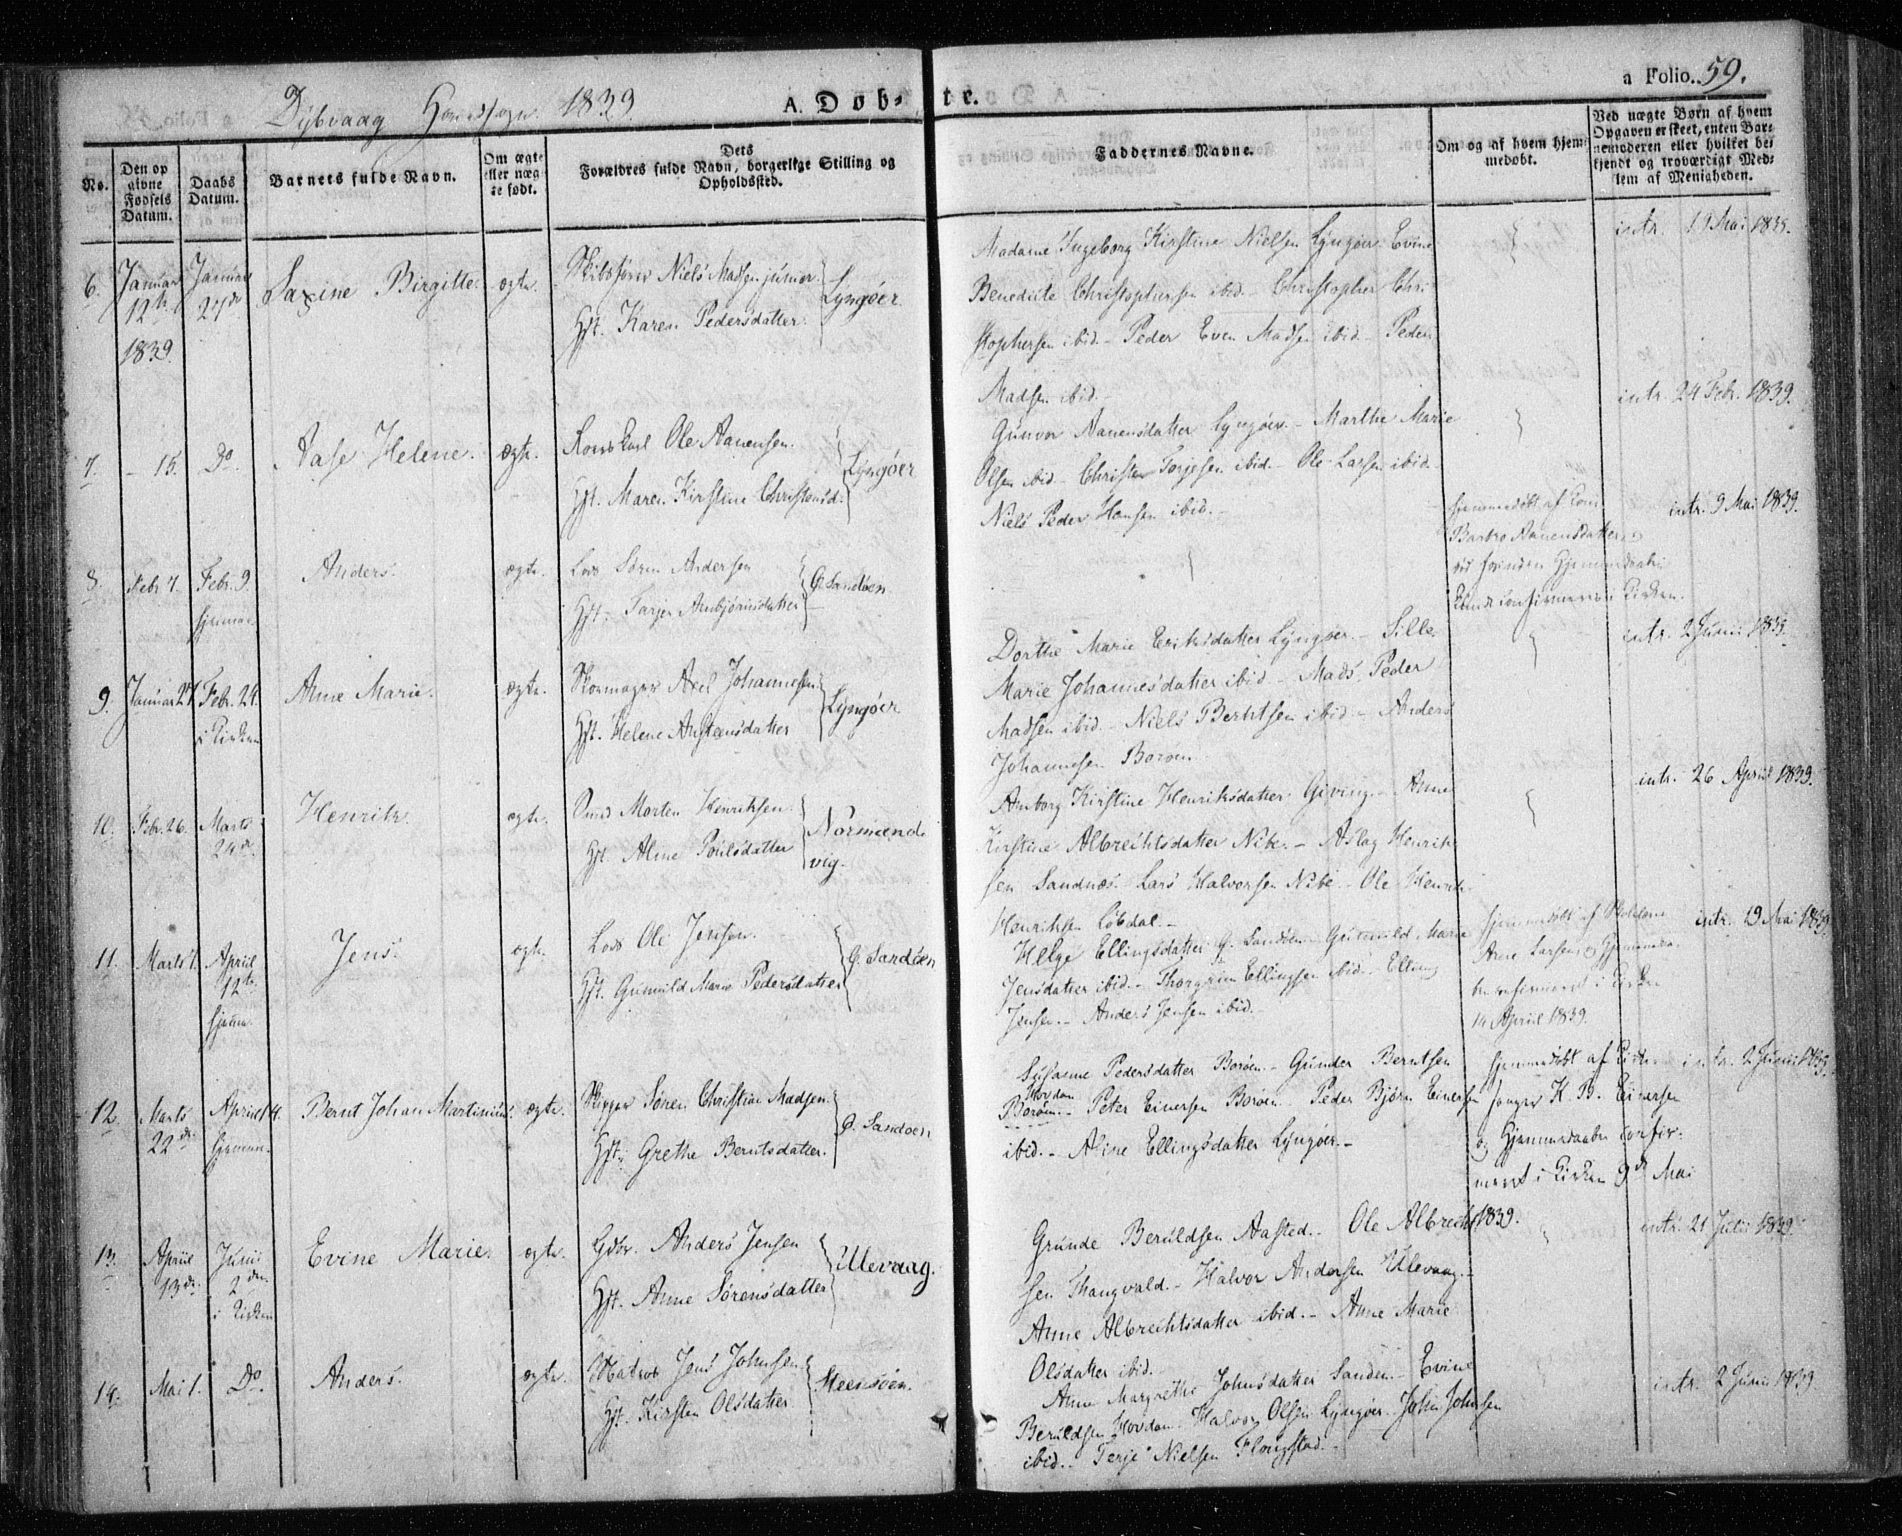 Dybvaag Hovedsogn 1839.
A. Døb-
te.
a Folio. 59.
No.
Den op
givne
Fødsels
Datum.
Daabs
Datum.
Barnets fulde Navn.
Om ægte
eller næg
te født.
Dets
Forældres fulde Navn, borgerlige Stilling og
Opholdssted.
Faddernes Navne.
Om og af hvem hjem
medøbt.
Ved nægte Børn af hvem
Opgaven er skeet, enten Bar-
nemoderen eller hvilket be-
kjendt og troværdigt Med-
lem af Menigheden.
6.
Januar
12te
1839.
Januar
27de
Saxine Birgitte.
ægte.
Skibsfører Niels Madsen junior.
Hst. Karen Pedersdatter.
Lyngøer
Madame Ingeborg Kirstine Nielsen Lyngøer. Evine
Benedicte Christophersen ibid. - Christopher Chri-
stophersen ibid. - Peder Even Madsen ibid. - Peder
Madsen ibid. -
intr. 19 Mai 1839.
7.
- 15.
Do.
Aase Helene.
ægte.
Ole Aanensen.
Hst. Maren Kirstine Christensd.
Lyngøer
Gunvor Aanensdatter Lyngøer. - Marthe Marie
Olsen ibid. - Christen Terjesen ibid. - Ole Larsen ibid.
Niels Peder Hansen ibid. -
intr. 24 Febr. 1839.
8.
Febr 7.
Febr. 9.
hjemme.
Anders.
ægte.
Lods Søren Andersen
Hst. Tarjer Anbjørnsdatter
G. Sandøen
hjemmedøbt af
Barbro Aanensdatter
Kirken.
intr. 9 Mai 1839.
9.
Januar 27.
Febr. 24.
i Kirken
Anne Marie.
ægte.
Skomager Axel Johannesen
Hst. Helene Anstensdatter
Lyngøer
Dorthe Marie Eriksdatter Lyngøer. - Sille
Marie Johannesdatter ibid. - Mads Peder
Madsen ibid. - Niels Berntsen ibid. - Anders
Johannesen Borøen.
intr. 2 Junii 1839.
10.
Febr. 26.
Marts
24de.
Henrik.
ægte.
Smed Morten Henriksen.
Hst. Alme Poulsdatter
Normand-
vig.
Anborg Kirstine Henriksdatter Giving. - Anne
Kirstine Albrechtsdatter Nibe. - Aslag Henrik-
sen Sandnæs. Lars Halvorsen Nibe. - Ole Henrik-
Henriksen Løbdal. -
intr. 26 April 1839.
11.
Marts 1.
April
12te
hjem.
Jens.
ægte.
Lods Ole Jensen.
Hst. Gunnild Marie Pedersdatter
G. Sandøen
Helge Ellingsdatter G. Sandøen. - Gunnild Marie
Jensdatter ibid. - Thorgrim Ellingsen ibid. - Elling
Jensen. - Anders Jensen ibid. -
hjemmedøbt af Skoleholderen
Arne Larsen, og Hjemmedaa-
ben confirmeret i Kirken
14 April 1839.
intr. 19 Mai 1839.
12.
Marts
22de.
April 14.
hjemme.
Bernt Johan Martinius.
ægte.
Skipper Søren Christian Madsen.
Hst. Grethe Berntsdatter.
G. Sandøen
Susanne Pedersdatter Borøen. - Gunder Berntsen
Hovdan
Borøen. - Peter Einersen Borøen. - Peder Bjørn Einersen
ibid. - Aline Ellingsdatter Lyngøer. -
hjemmedøbt af Kirke-
sanger K. B. Einersen
og Hjemmedaaben confir-
meret i Kirken 9de Mai
1839.
intr. 2 Junii 1839.
13.
April
13de.
Junii
2den
i Kirken
Evine Marie.
ægte.
Gdbr. Anders Jensen
Hst. Anne Sørensdatter
Ulevaag.
Grunde Beruldsen Aasted. - Ole Albrecht-
sen Thangvald. - Halvor Andersen Ulevaag. -
Anne Albrechtsdatter ibid. - Anne Marie
Olsdatter ibid.
intr. 21 Julii 1839.
14.
Mai 1.
Do.
Anders.
ægte.
Matros Jens Johnsen
Hst. Kirsten Olsdatter
Steensøen.
Anne Margrethe Johnsdatter Sanden. - Evine
Beruldsen Hovdan. Halvor Olsen Lyngøer. John Johnsen
ibid. - Terje Nielsen Flougstad. -
intr. 2 Junii 1839